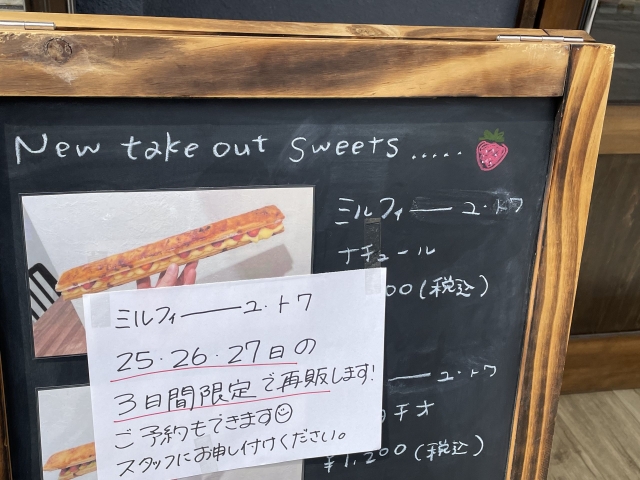 New take out sweets.....
ミルフィ——ユ・トワ
ナチュール
00(税込)
ミルフィ——ユ・トワ
25・26・27日の
3日間限定で再販します!
ご予約もできます☺
スタッフにお申し付けください。
——ユ・トワ
チオ
¥1,200(税込)